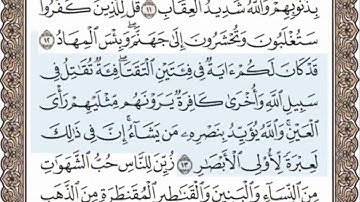 بِذُنُوبِهِمْ وَاللَّهُ شَدِيدُ الْعِقَابِ ١١ قُل لِّلَّذِينَ كَفَرُوا
سَتُغْلَبُونَ وَتُحْشَرُونَ إِلَىٰ جَهَنَّمَ وَبِئْسَ الْمِهَادُ ١٢
قَدْ كَانَ لَكُمْ ءَايَةٌ فِي فِئَتَيْنِ الْتَقَتَا فِئَةٌ تُقَاتِلُ فِي
سَبِيلِ اللَّهِ وَأُخْرَىٰ كَافِرَةٌ يَرَوْنَهُم مِّثْلَيْهِمْ رَأْيَ
الْعَيْنِ وَاللَّهُ يُؤَيِّدُ بِنَصْرِهِ مَن يَشَاءُ إِنَّ فِي ذَٰلِكَ
لَعِبْرَةً لِّأُولِي الْأَبْصَارِ ١٣ زُيِّنَ لِلنَّاسِ حُبُّ الشَّهَوَاتِ
مِنَ النِّسَاءِ وَالْبَنِينَ وَالْقَنَاطِيرِ الْمُقَنطَرَةِ مِنَ الذَّهَبِ